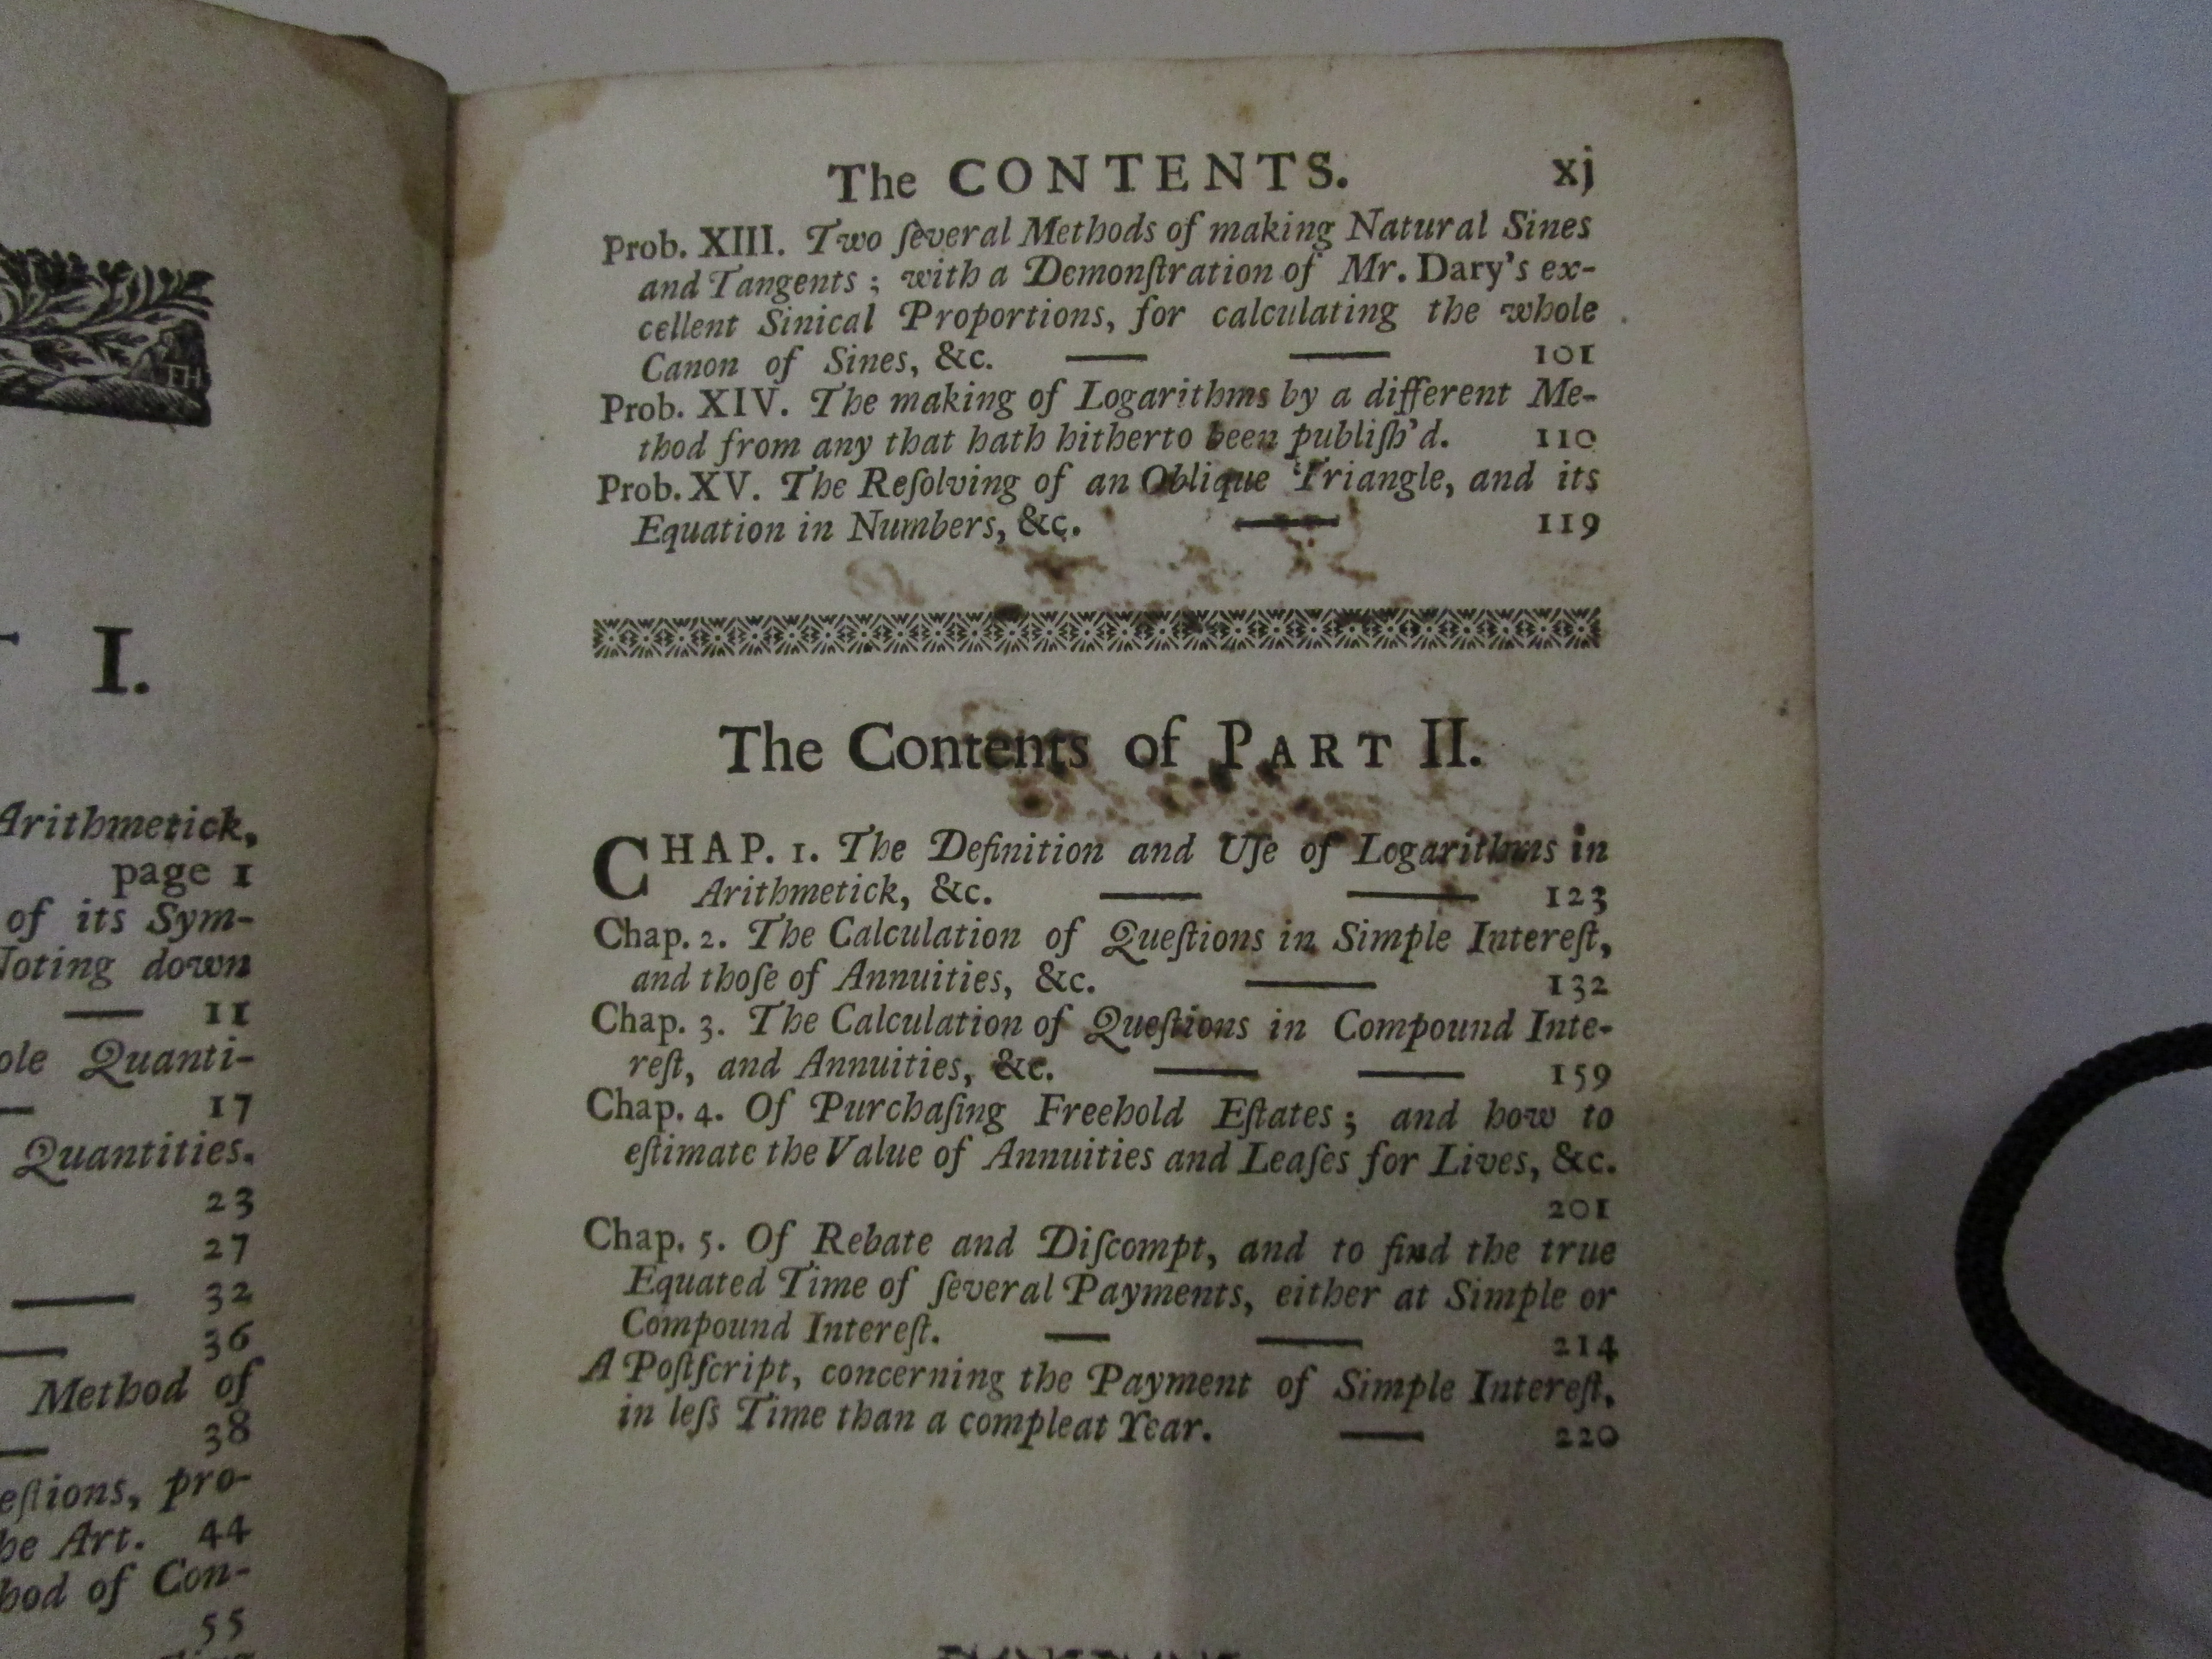 I.
Arithmetick,
page 1
of its Sym-
Noting down
11
Quanti-
17
Quantities.
23
27
32
36
Method of
38
pro-
Art. 44
of Con-
55
The CONTENTS. xj
Prob. XIII. Two ſeveral Methods of making Natural Sines
and Tangents ; with a Demonſtration of Mr. Dary's ex-
cellent Sinical Proportions, for calculating the whole
Canon of Sines, &c. —— —— 101
Prob. XIV. The making of Logarithms by a different Me-
thod from any that hath hitherto been publiſh'd. 110
Prob. XV. The Reſolving of an Oblique Triangle, and its
Equation in Numbers, &c. —— 119
The Contents of PART II.
CHAP. 1. The Definition and Uſe of Logarithms in
Arithmetick, &c. —— —— 123
Chap. 2. The Calculation of Queſtions in Simple Intereſt,
and thoſe of Annuities, &c. —— 132
Chap. 3. The Calculation of Queſtions in Compound Inte-
reſt, and Annuities, &c. —— —— 159
Chap. 4. Of Purchaſing Freehold Eſtates ; and how to
eſtimate the Value of Annuities and Leaſes for Lives, &c.
201
Chap. 5. Of Rebate and Diſcompt, and to find the true
Equated Time of ſeveral Payments, either at Simple or
Compound Intereſt. —— —— 214
A Poſtſcript, concerning the Payment of Simple Intereſt,
in leſs Time than a compleat Year. —— 220